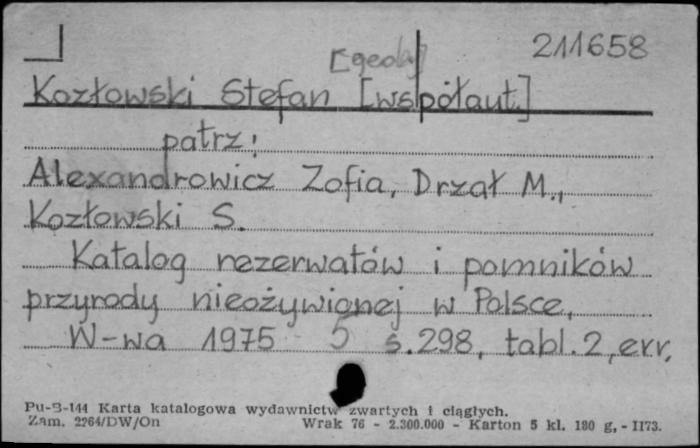 [geolog] 211658
Kozłowski Stefan [współaut.]
patrz:
Alexandrowicz Zofia, Drzał M.,
Kozłowski S.
Katalog rezerwatów i pomników
przyrody nieożywionej w Polsce,
W-wa 1975 s. 298, tabl. 2, err.
Pu-B-144 Karta katalogowa wydawnictw zwartych i ciągłych.
Zam. 2264/DW/On Wrak 76 - 2.300.000 - Karton 5 kl. 180 g, - II73.